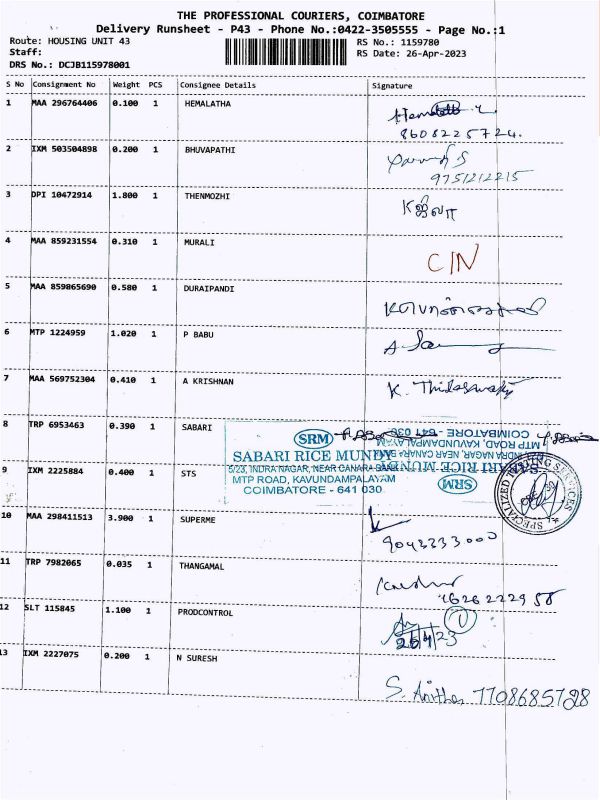 THE PROFESSIONAL COURIERS, COIMBATORE
Delivery Runsheet - P43 - Phone No.:0422-3505555 - Page No.:1
Route: HOUSING UNIT 43 RS No.: 1159780
Staff: RS Date: 26-Apr-2023
DRS No.: DCJB115978001
S No Consignment No Weight PCS Consignee Details Signature
1 MAA 296764406 0.100 1 HEMALATHA
8608225724.
2 IXM 503504898 0.200 1 BHUVAPATHI
9751212215
3 DPI 10472914 1.800 1 THENMOZHI
4 MAA 859231554 0.310 1 MURALI C/N
5 MAA 859865690 0.580 1 DURAIPANDI
6 MTP 1224959 1.020 1 P BABU
7 MAA 569752304 0.410 1 A KRISHNAN K.
8 TRP 6953463 0.390 1 SABARI
SRM
SABARI RICE MUNDY
5/23, INDRA NAGAR, NEAR CANARA BANK
MTP ROAD, KAVUNDAMPALAYAM
COIMBATORE - 641 030
SRM
SABARI RICE MUNDY
INDRA NAGAR, NEAR CANARA BANK
MTP ROAD, KAVUNDAMPALAYAM
COIMBATORE - 641 030
9 IXM 2225884 0.400 1 STS
SPECIALIZED SERVICES
10 MAA 298411513 3.900 1 SUPERME
9043333000
11 TRP 7982065 0.035 1 THANGAMAL
12 SLT 115845 1.100 1 PRODCONTROL
26/4/23
13 IXM 2227075 0.200 1 N SURESH
S. Anitha 7708685728